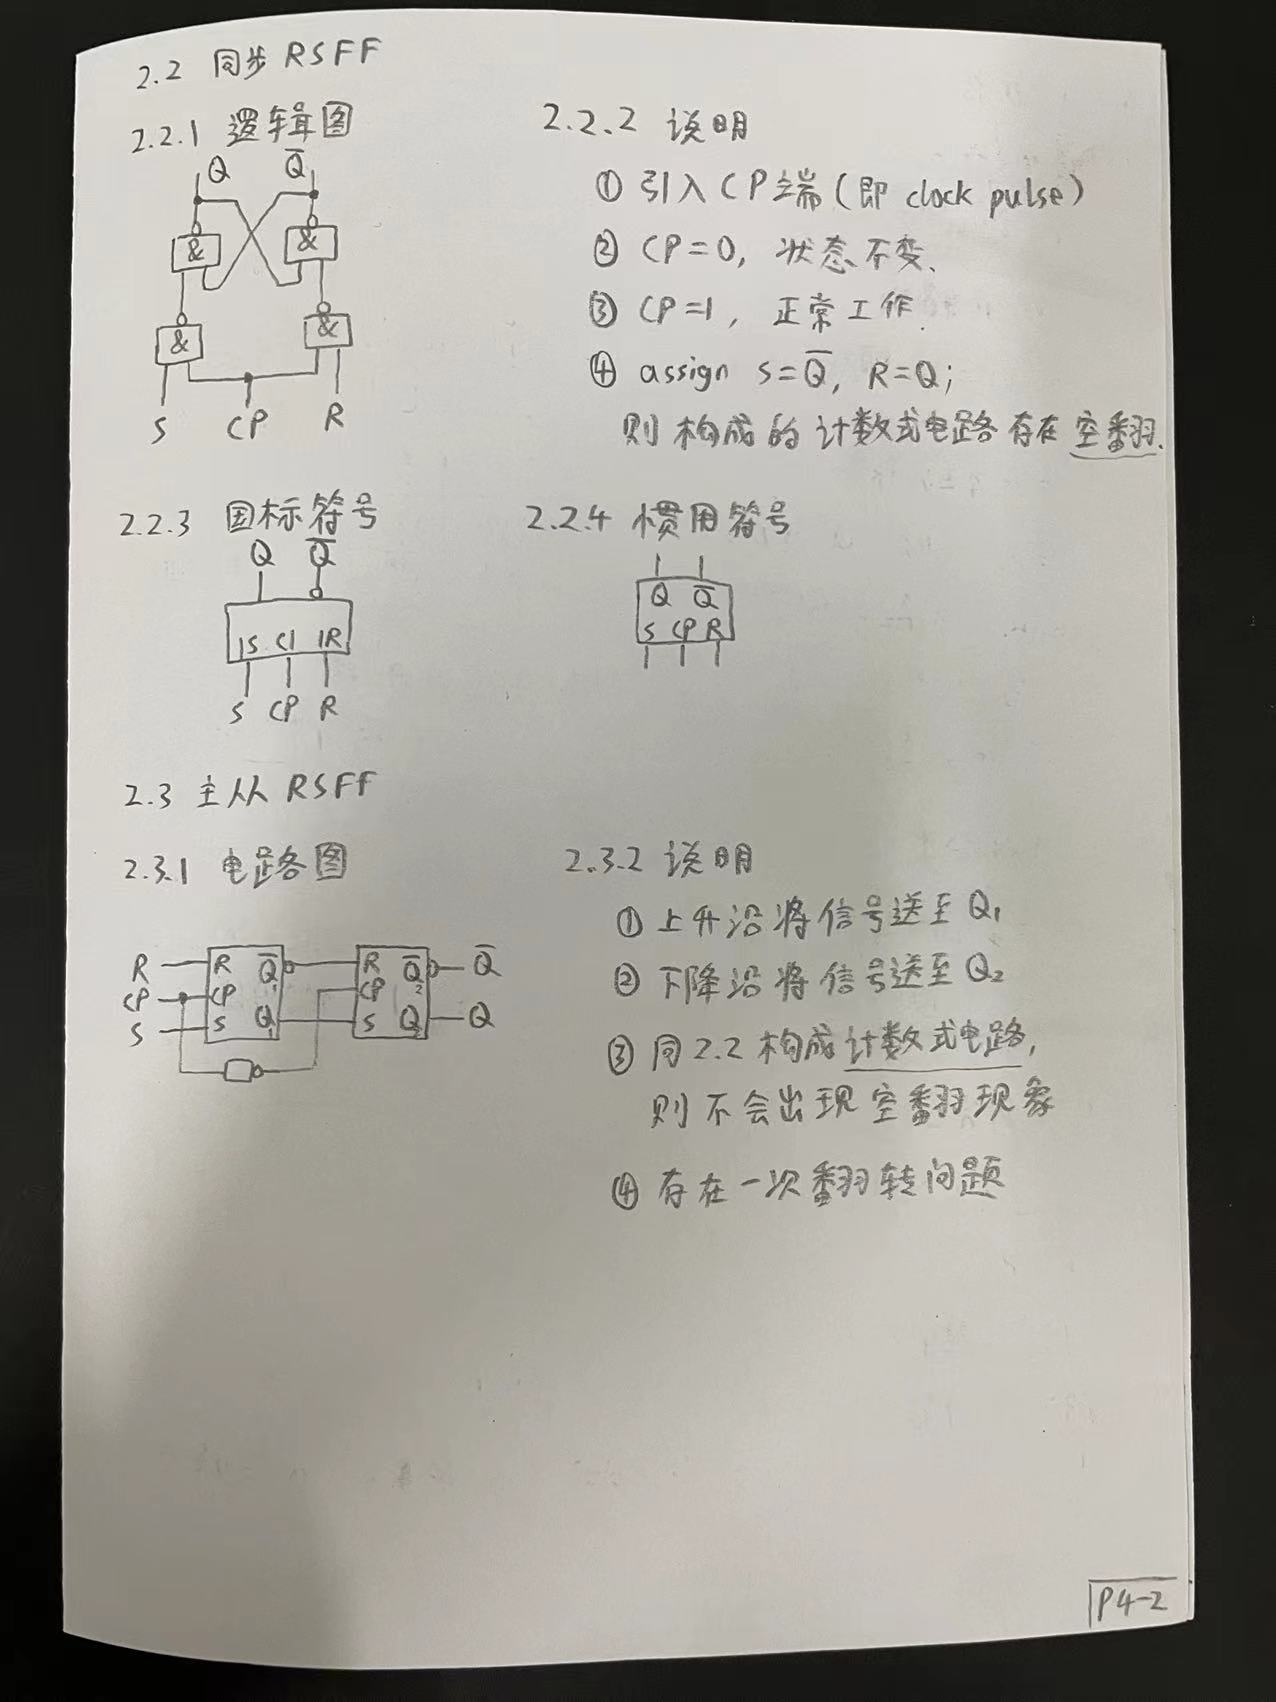 2.2 同步 RSFF
2.2.1 逻辑图
Q Q̅
& &
& &
S CP R
2.2.2 说明
① 引入CP端(即 clock pulse)
② CP=0, 状态不变.
③ CP=1, 正常工作.
④ assign S=Q̅, R=Q;
则构成的计数式电路存在空翻.
2.2.3 国标符号
Q Q̅
1S C1 1R
S CP R
2.2.4 惯用符号
Q Q̅
S CP R
2.3 主从 RSFF
2.3.1 电路图
R R Q̅₁ R Q̅₂ Q̅
CP CP CP
S S Q₁ S Q₂ Q
2.3.2 说明
① 上升沿将信号送至 Q₁
② 下降沿将信号送至 Q₂
③ 同2.2构成计数式电路,
则不会出现空翻现象
④ 存在一次翻转问题
P4-2